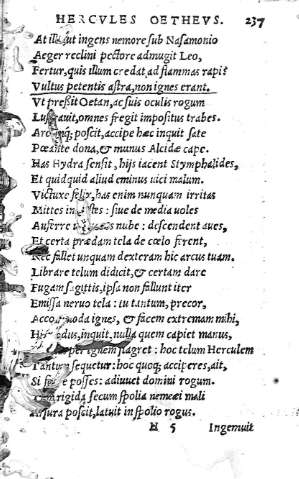 HERCVLES OETHEVS. 237
At ille ut ingens nemore sub Nasamonio
Aeger reclini pectore admugit Leo,
Fertur, quis illum credat, ad flammas rapi?
Vultus petentis astra, non ignes erant.
Vt preßit Oetan, ac suis oculis rogum
Lustrauit, omnes fregit impositus trabes.
poscit, accipe hæc inquit sate
Pœante dona, & munus Alcidæ cape.
Has Hydra sensit, hijs iacent Stymphalides,
Et quidquid aliud eminus uici malum.
Victure felix, has enim nunquam irritas
Mittes in : siue de media uoles
Auferre nube: descendent aues,
Et certa prædam tela de cœlo ferent,
Nec fallet unquam dexteram hic arcus tuam.
Librare telum didicit, & certam dare
Fugam sagittis, ipsa non fallunt iter
Emissa neruo tela: tu tantum, precor,
Accommoda ignes, & facem extremam mihi,
Hic nodus, inquit, nulla quem capiet manus,
per ignem flagret: hoc telum Herculem
Tantum sequetur: hoc quoq; acciperes, ait,
Si posses: adiuuet domini rogum.
rigida secum spolia nemeæi mali
Arsura poscit, latuit in spolio rogus.
H 5 Ingemuit